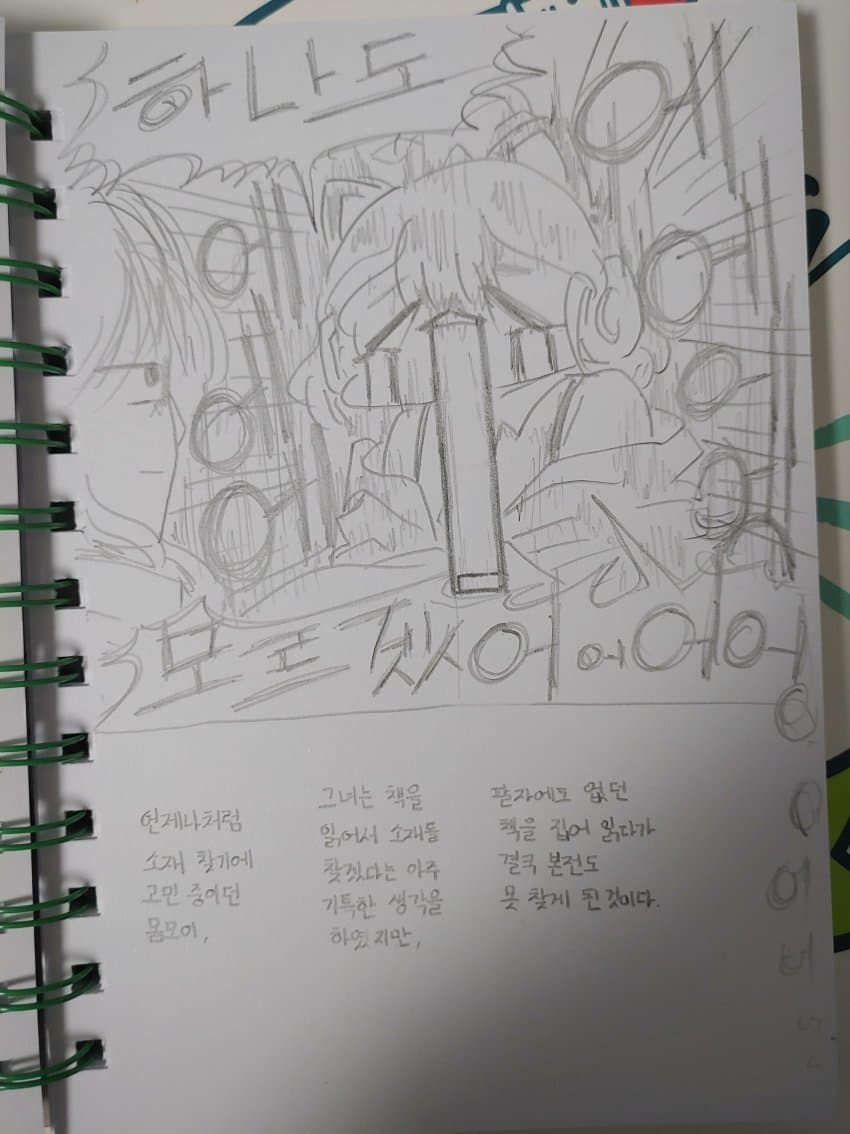 하나도
모르겠어어어어
언제나처럼
소재 찾기에
고민 중이던
몸모이,
그녀는 책을
읽어서 소재를
찾겠다는 아주
기특한 생각을
하였지만,
팔자에도 없던
책을 집어 읽다가
결국 본전도
못 찾게 된 것이다.